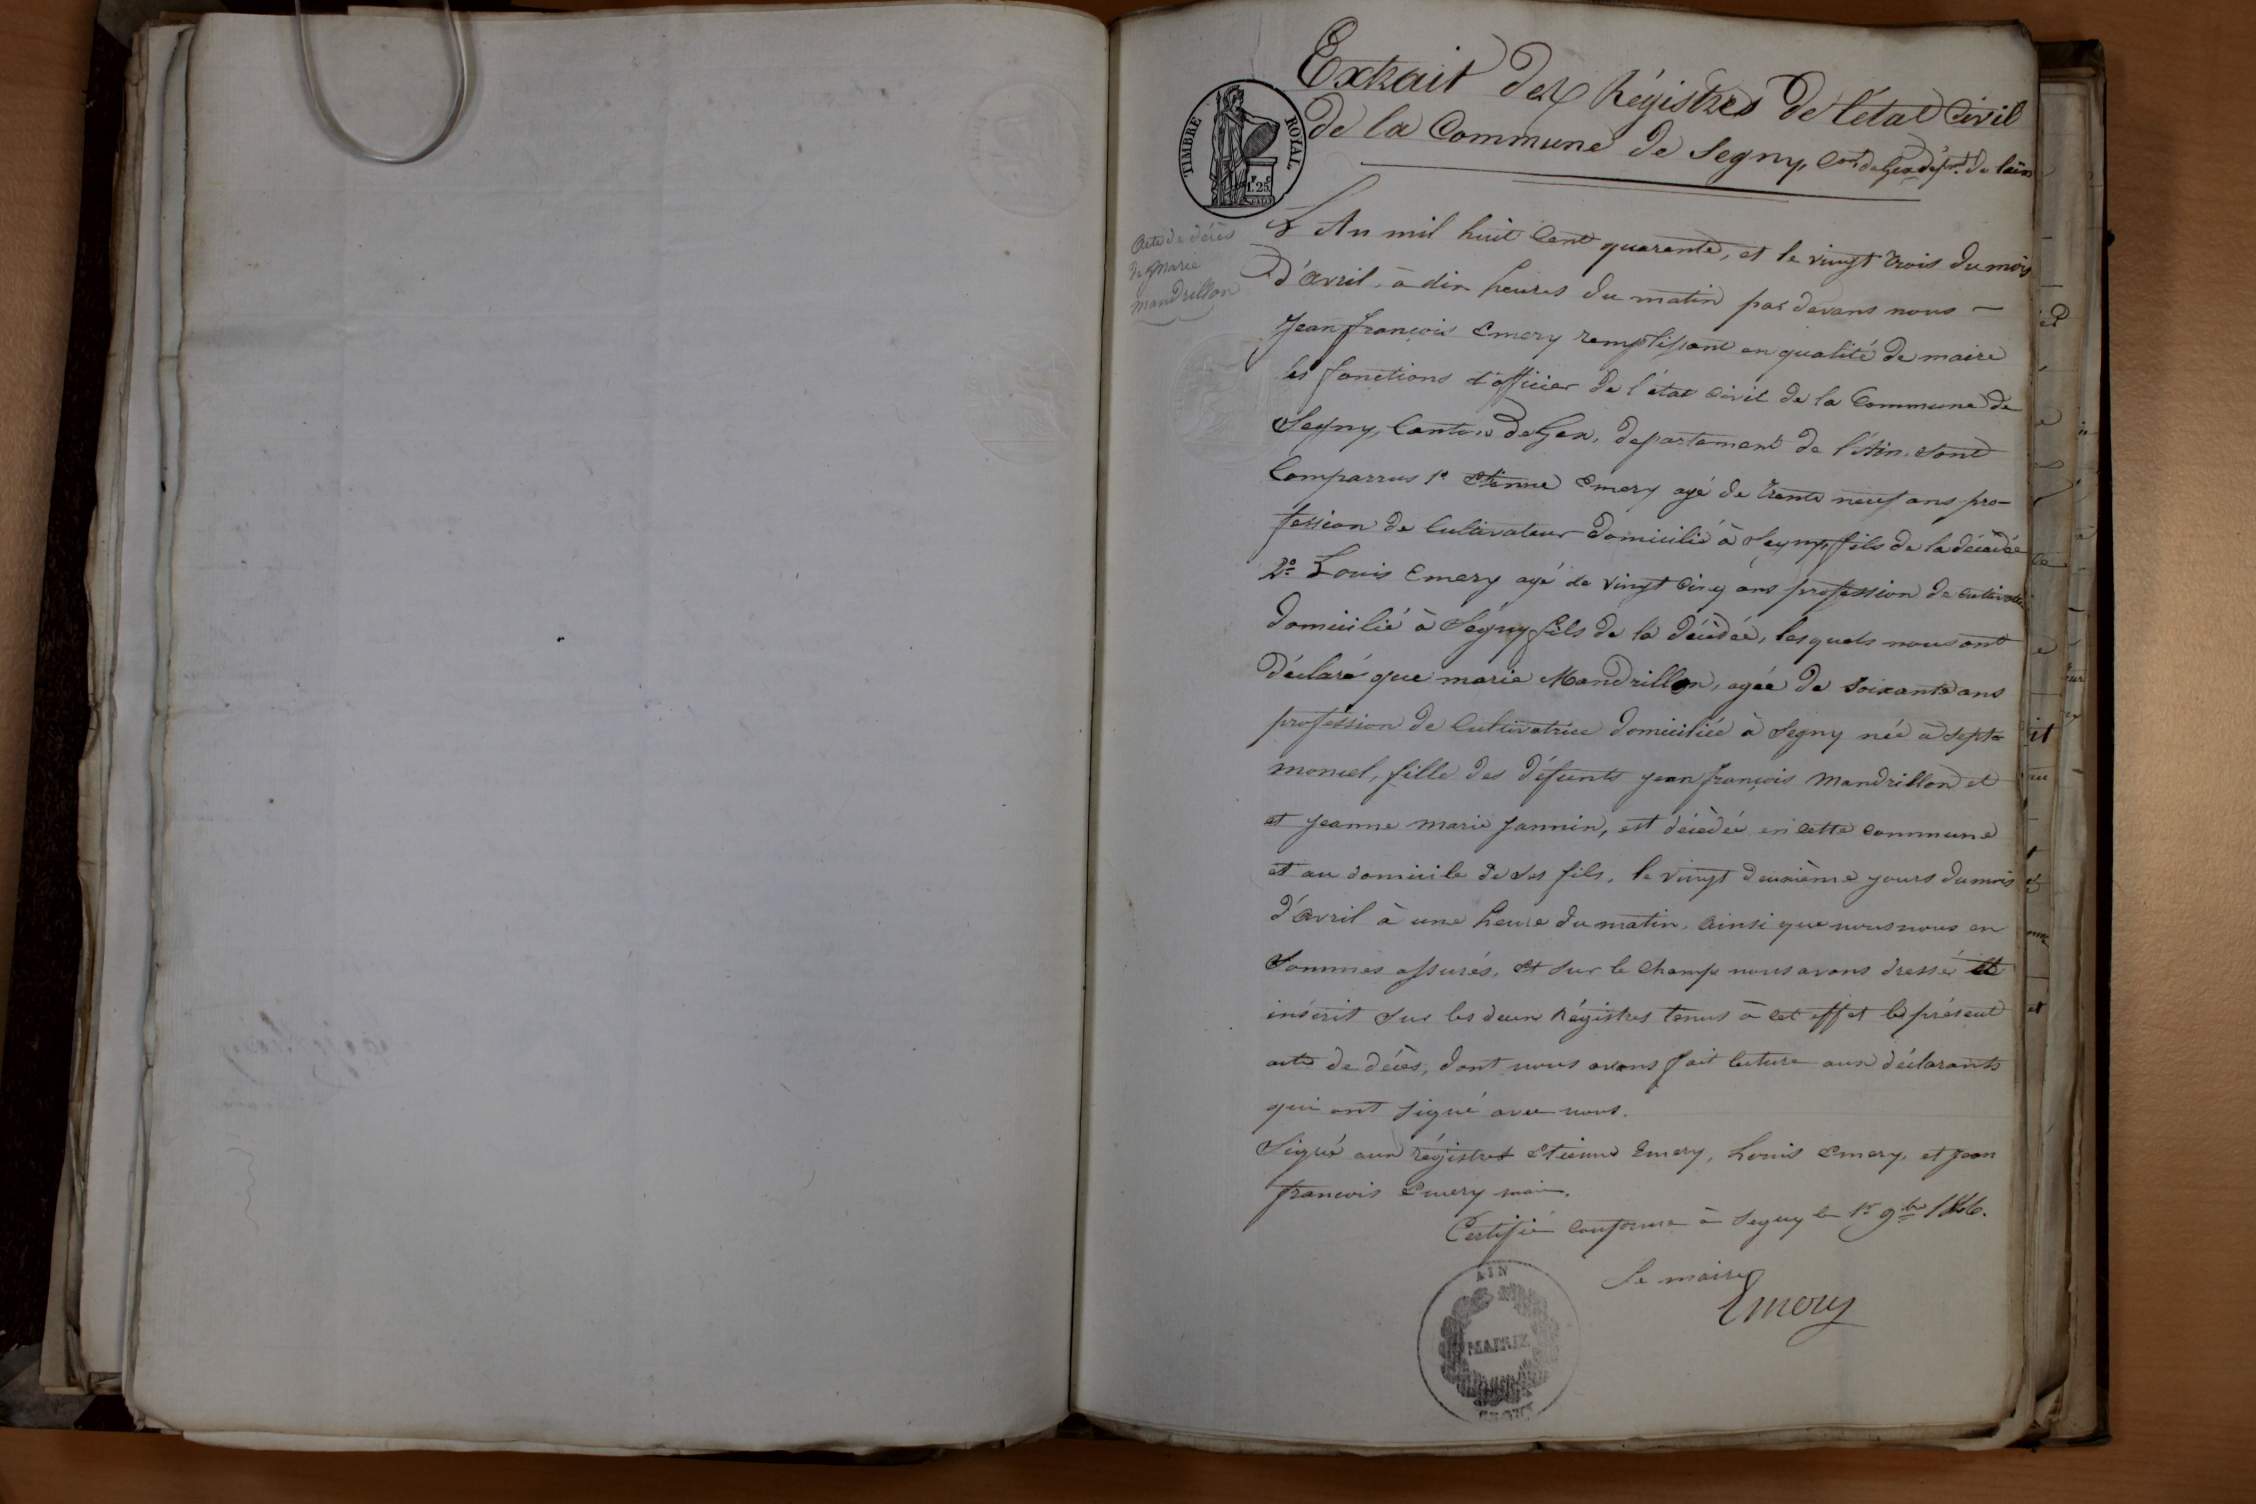 Extrait des Régistres de l'état Civil
de la Commune de Segny, Con de Gex dépt. de l'ain
TIMBRE ROYAL
1F. 25C
Acte de décès
de Marie
mandrillon
L'An mil huit Cent quarante, et le vingt trois du mois
d'avril, à dix heures du matin par devans nous —
Jean françois Emery remplissant en qualité de maire
les fonctions d'officier de l'état Civil de la Commune de
Segny, Canton de Gex, departement de l'Ain. sont
Comparrus 1º Etienne Emery agé de trente neuf ans pro-
fession de Cultivateur domicilié à Segny, fils de la décédée
2º Louis Emery agé de vingt Cinq ans profession de cultivateur
domicilié à Ségny fils de la décédée, lesquels nous ont
déclaré que marie Mandrillon, agée de soixante ans
proféssion de Cultivatrice domiciliée à Segny née à Septe
moncel, fille des défunts jean françois Mandrillon et
et jeanne marie Jannin, est décèdée en cette commune
et au domicile de ses fils, le vingt deuxième jours du mois
d'avril à une heure du matin, ainsi que nous nous en
sommes assurés, et sur le champ nous avons dressé et
inscrit sur les deux régistres tenus à cet effet le présent
acte de décès, dont nous avons fait lecture aux déclarants
qui ont signé avec nous.
Signé aux régistres Etienne Emery, Louis Emery, et jean
francois Emery maire.
Certifié conforme à Segny le 1er 9bre 1846.
Le maire
Emery
AIN
MAIRIE